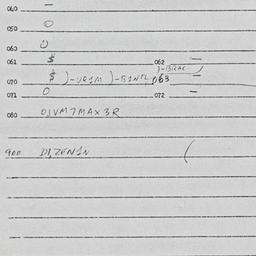 040 –
050 0
060 0
061 $ 062 –
070 $ )-VR1M )-B1NTL 063 –
071 0 072 –
080 0)VM7MAX3R
900 D1,ZEN1N (